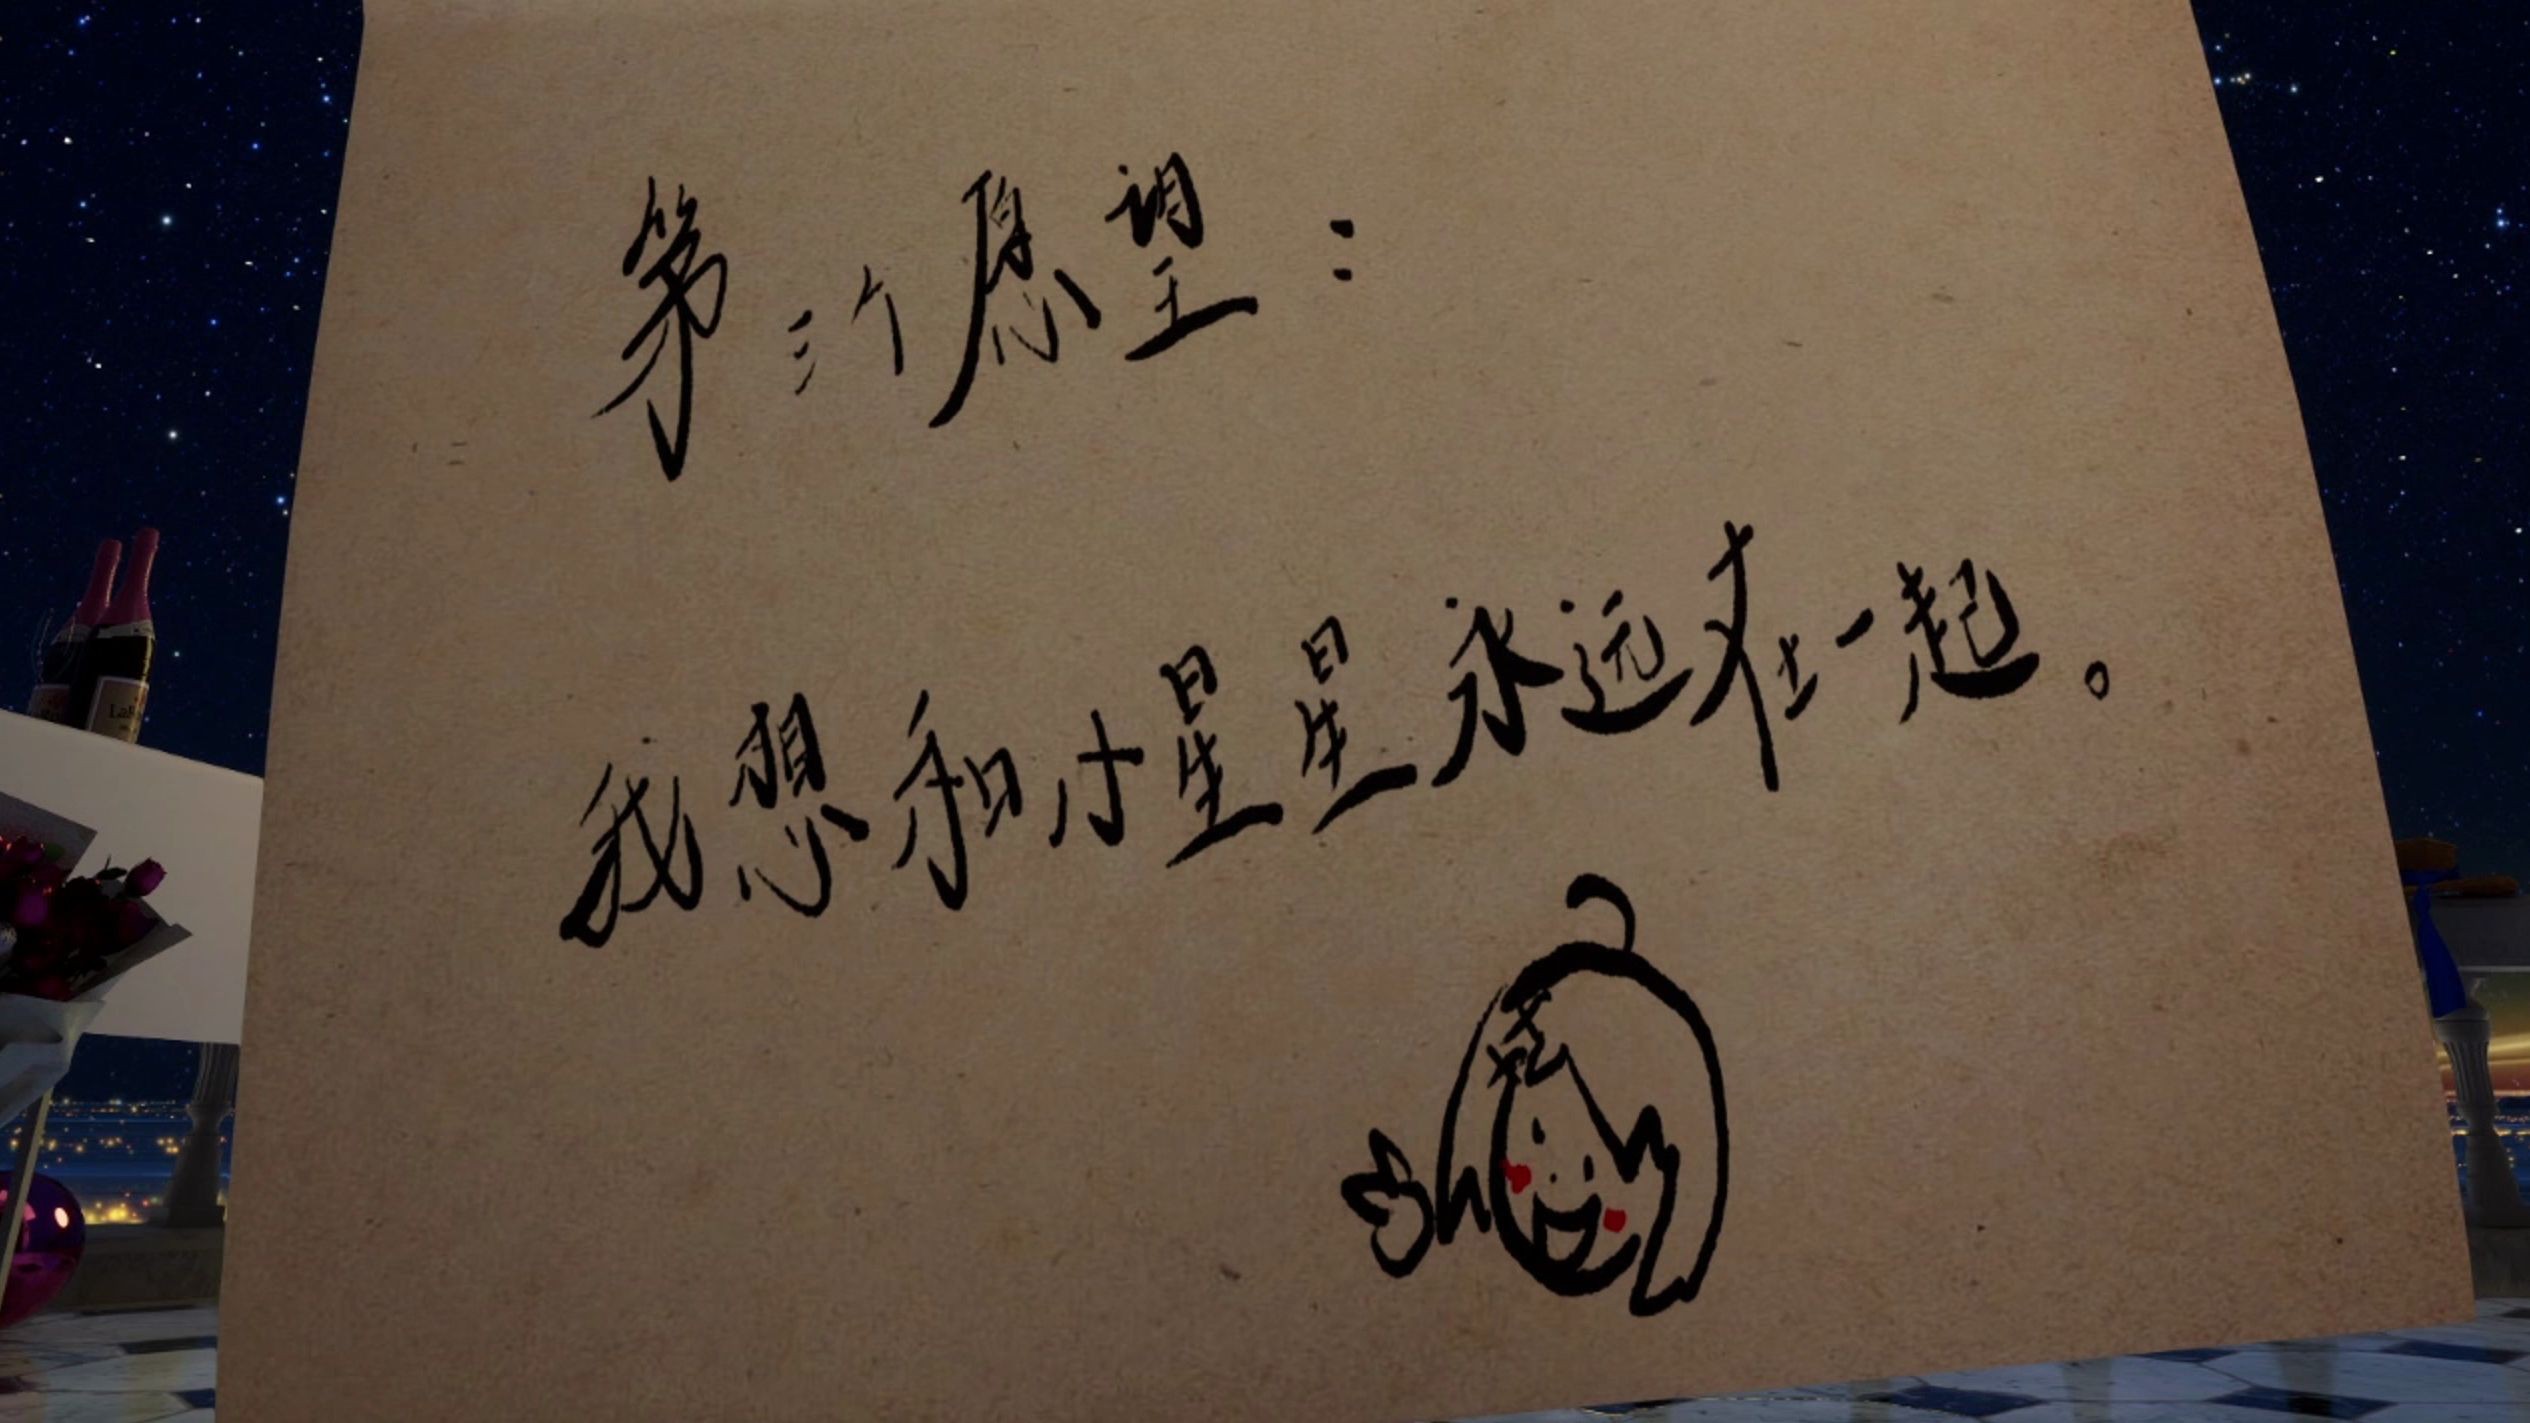 第三个愿望：
我想和小星星永远在一起。